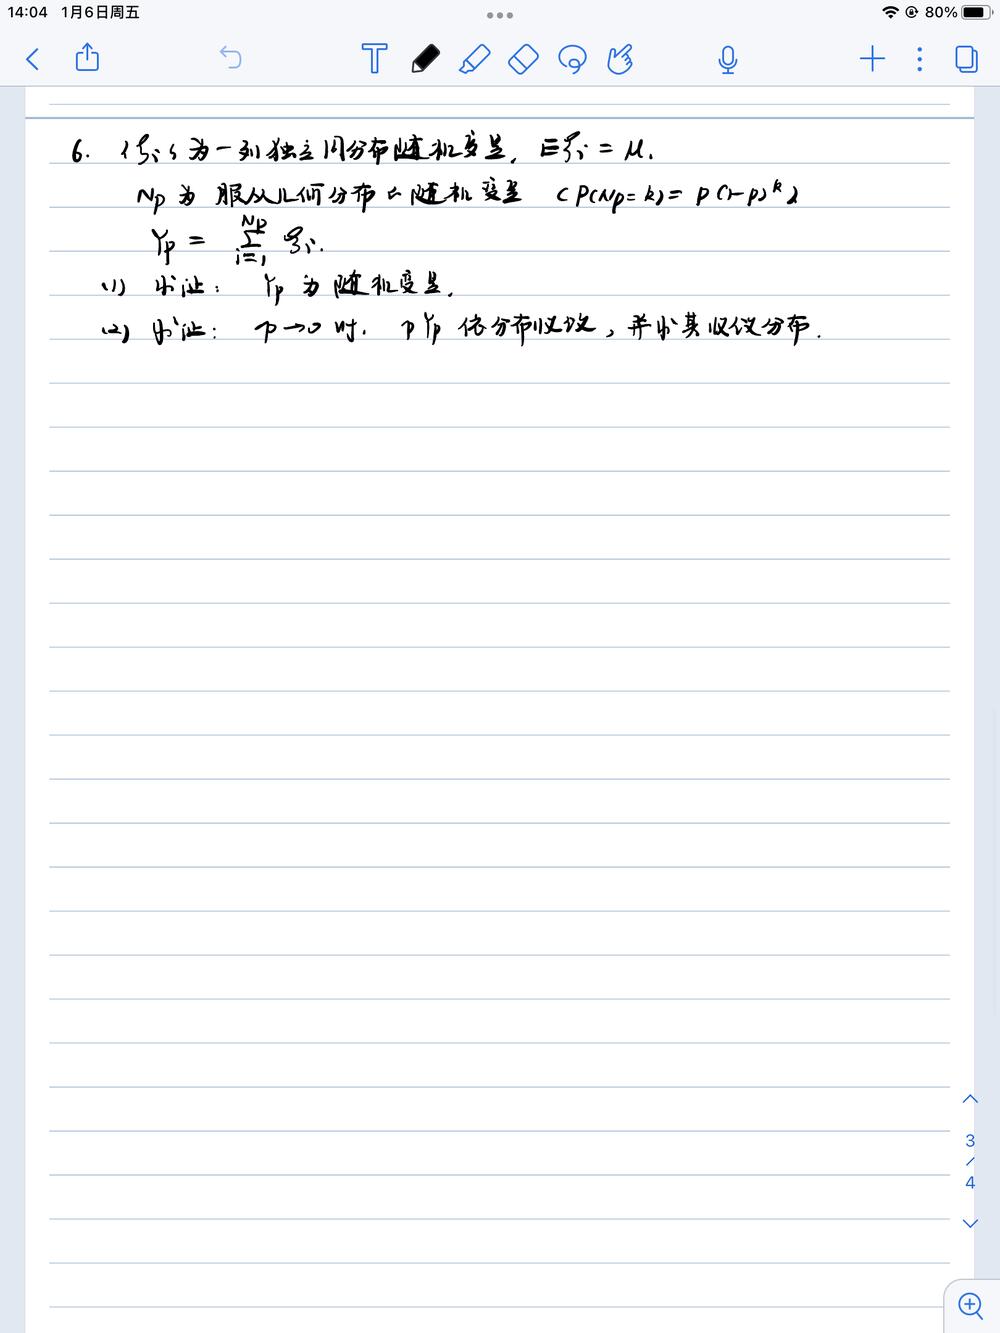 14:04 1月6日周五
80%
6. {ξi} 为一列独立同分布随机变量, Eξi = μ.
Np 为 服从几何分布的随机变量 (P(Np=k) = p(1-p)^k)
Yp = Σ_{i=1}^{Np} ξi.
(1) 求证: Yp 为随机变量.
(2) 求证: p→0 时, pYp 依分布收敛, 并求其收敛分布.
3
/
4